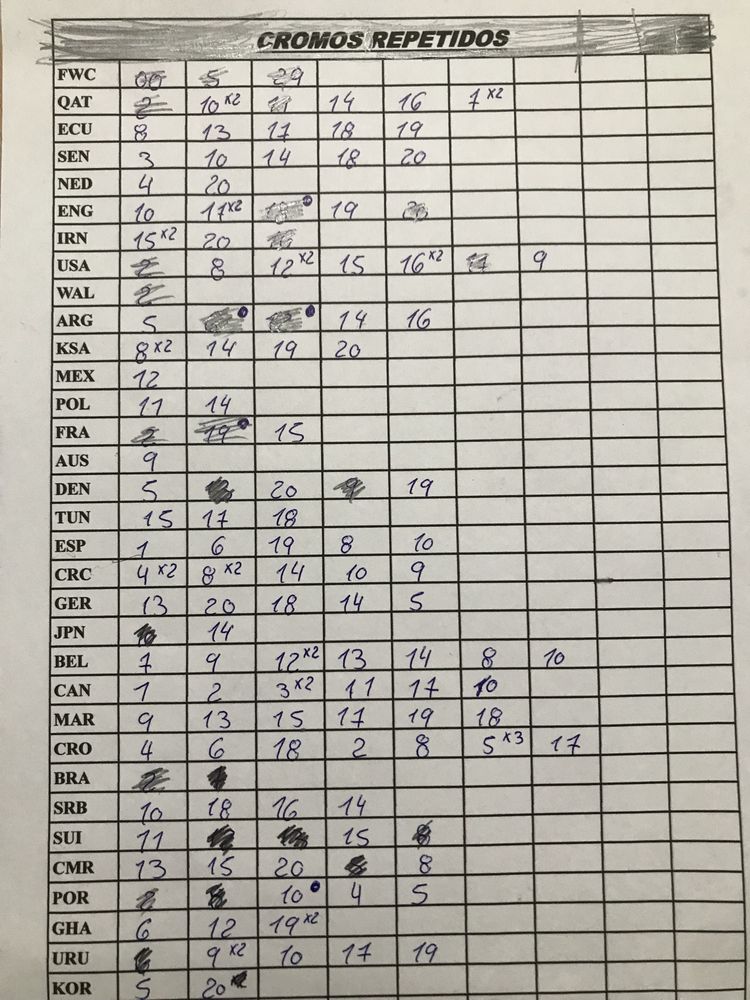 CROMOS REPETIDOS
FWC 00 5 29
QAT 2 10x2 11 14 16 7x2
ECU 8 13 17 18 19
SEN 3 10 14 18 20
NED 4 20
ENG 10 17x2 19 20
IRN 15x2 20
USA 2 8 12x2 15 16x2 17 9
WAL 2
ARG 5 14 16
KSA 8x2 14 19 20
MEX 12
POL 11 14
FRA 2 19 15
AUS 9
DEN 5 20 9 19
TUN 15 17 18
ESP 1 6 19 8 10
CRC 4x2 8x2 14 10 9
GER 13 20 18 14 5
JPN 10 14
BEL 7 9 12x2 13 14 8 10
CAN 1 2 3x2 11 17 10
MAR 9 13 15 17 19 18
CRO 4 6 18 2 8 5x3 17
BRA 2
SRB 10 18 16 14
SUI 11 15 8
CMR 13 15 20 8
POR 2 10 4 5
GHA 6 12 19x2
URU 9x2 10 17 19
KOR 5 20